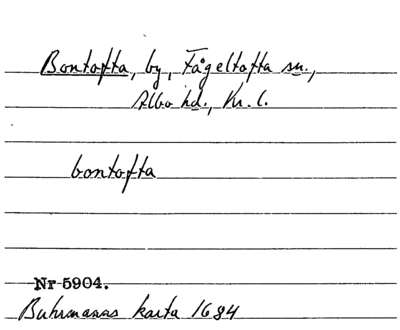 Bontofta, by, Fågeltofta sn.,
Albo hd., Kr. l.
bontofta
Nr 5904.
Buhrmanns karta 1684